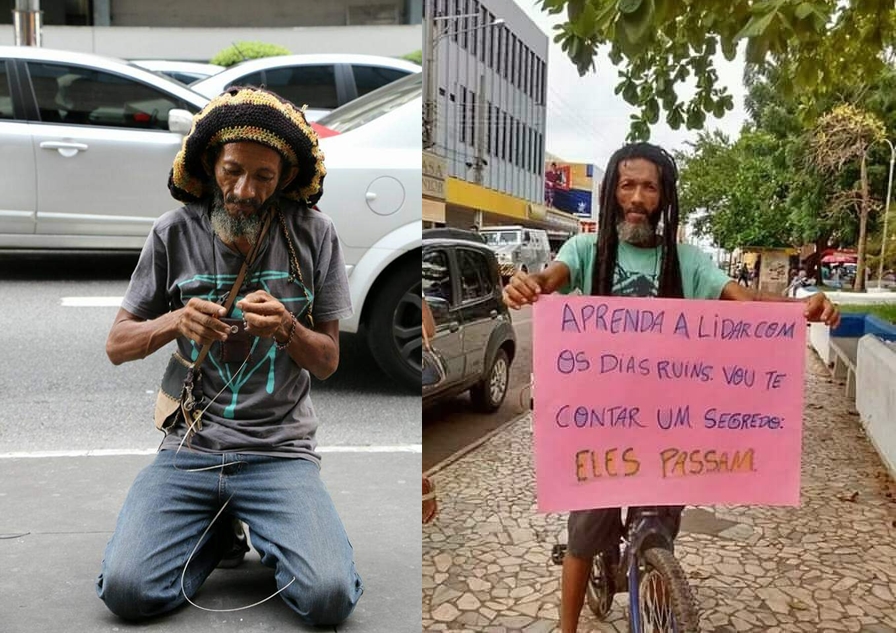 APRENDA A LIDAR COM
OS DIAS RUINS. VOU TE
CONTAR UM SEGREDO:
ELES PASSAM